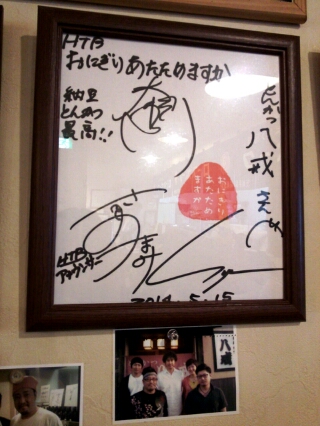 HTB
おにぎりあたためますか
納豆
とんかつ
最高!!
とんかつ八戒さんへ
おにぎり
あたため
ますか
HTB
アナウンサー
2014.5.15
八戒